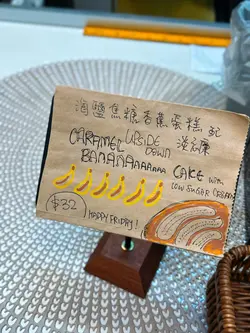 海鹽焦糖香蕉蛋糕配
淡忌廉
CARAMEL UPSIDE DOWN
BANANAaaaaaa CAKE WITH
LOW SUGAR CREAM
$32
HAPPY FRIDAY!